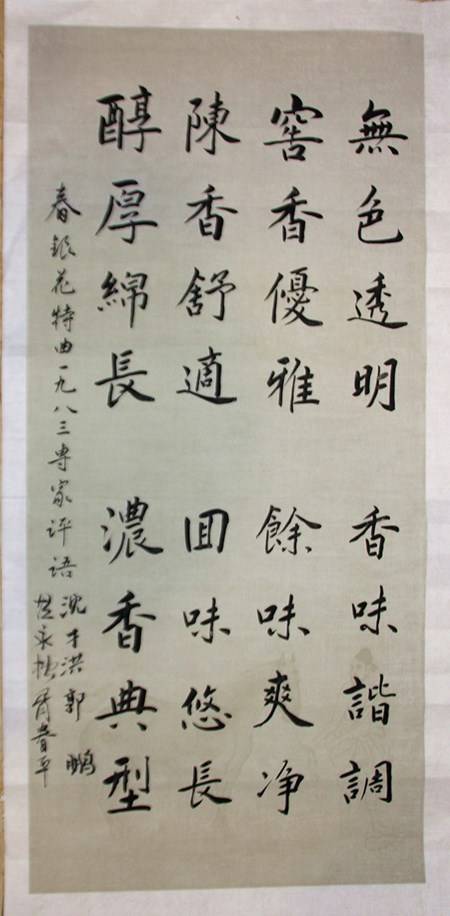 無色透明 香味諧調
窖香優雅 餘味爽净
陳香舒適 囬味悠長
醇厚綿長 濃香典型
春银花特曲一九八三專家评语 沈才洪 郭鹏
胥春平